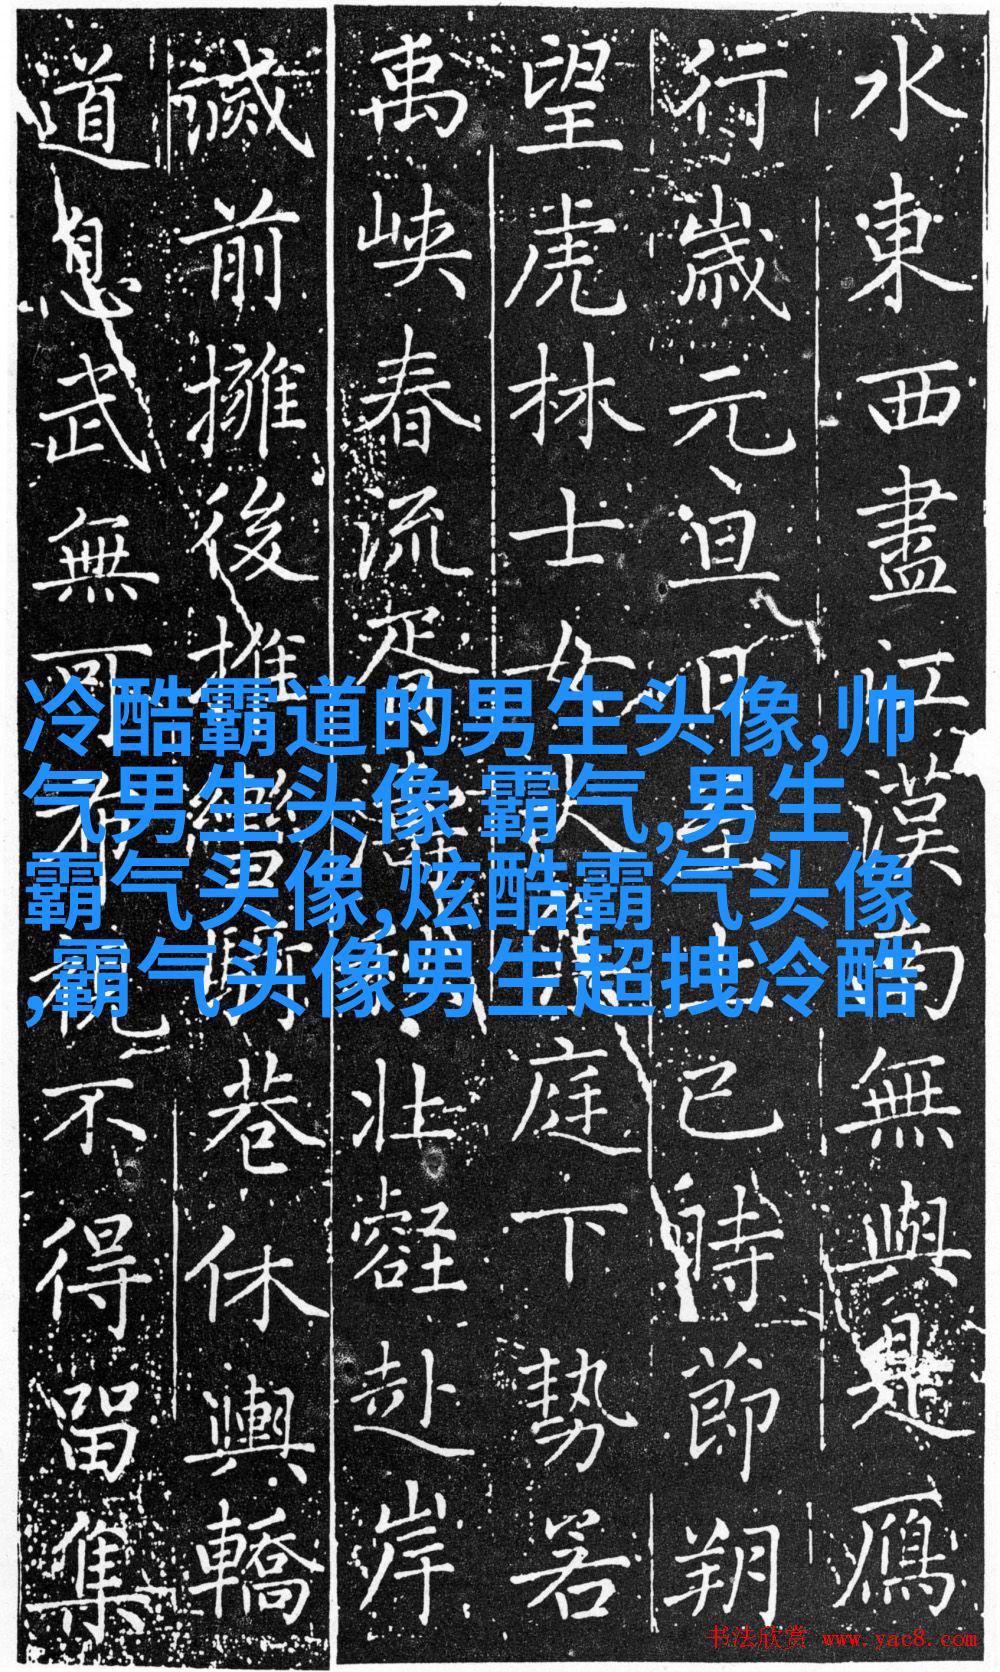 水東西盡江漢南無與是鴈
行歲元旦已時節朔
望虎林士女庭下勢若
禹峽春流壯赴岸
前擁後推巷休輿轎
道息武無可不得留集
冷酷霸道的男生头像,帅
气男生头像 霸气,男生
霸气头像,炫酷霸气头像
,霸气头像男生超拽冷酷
书法欣赏 www.yac8.com